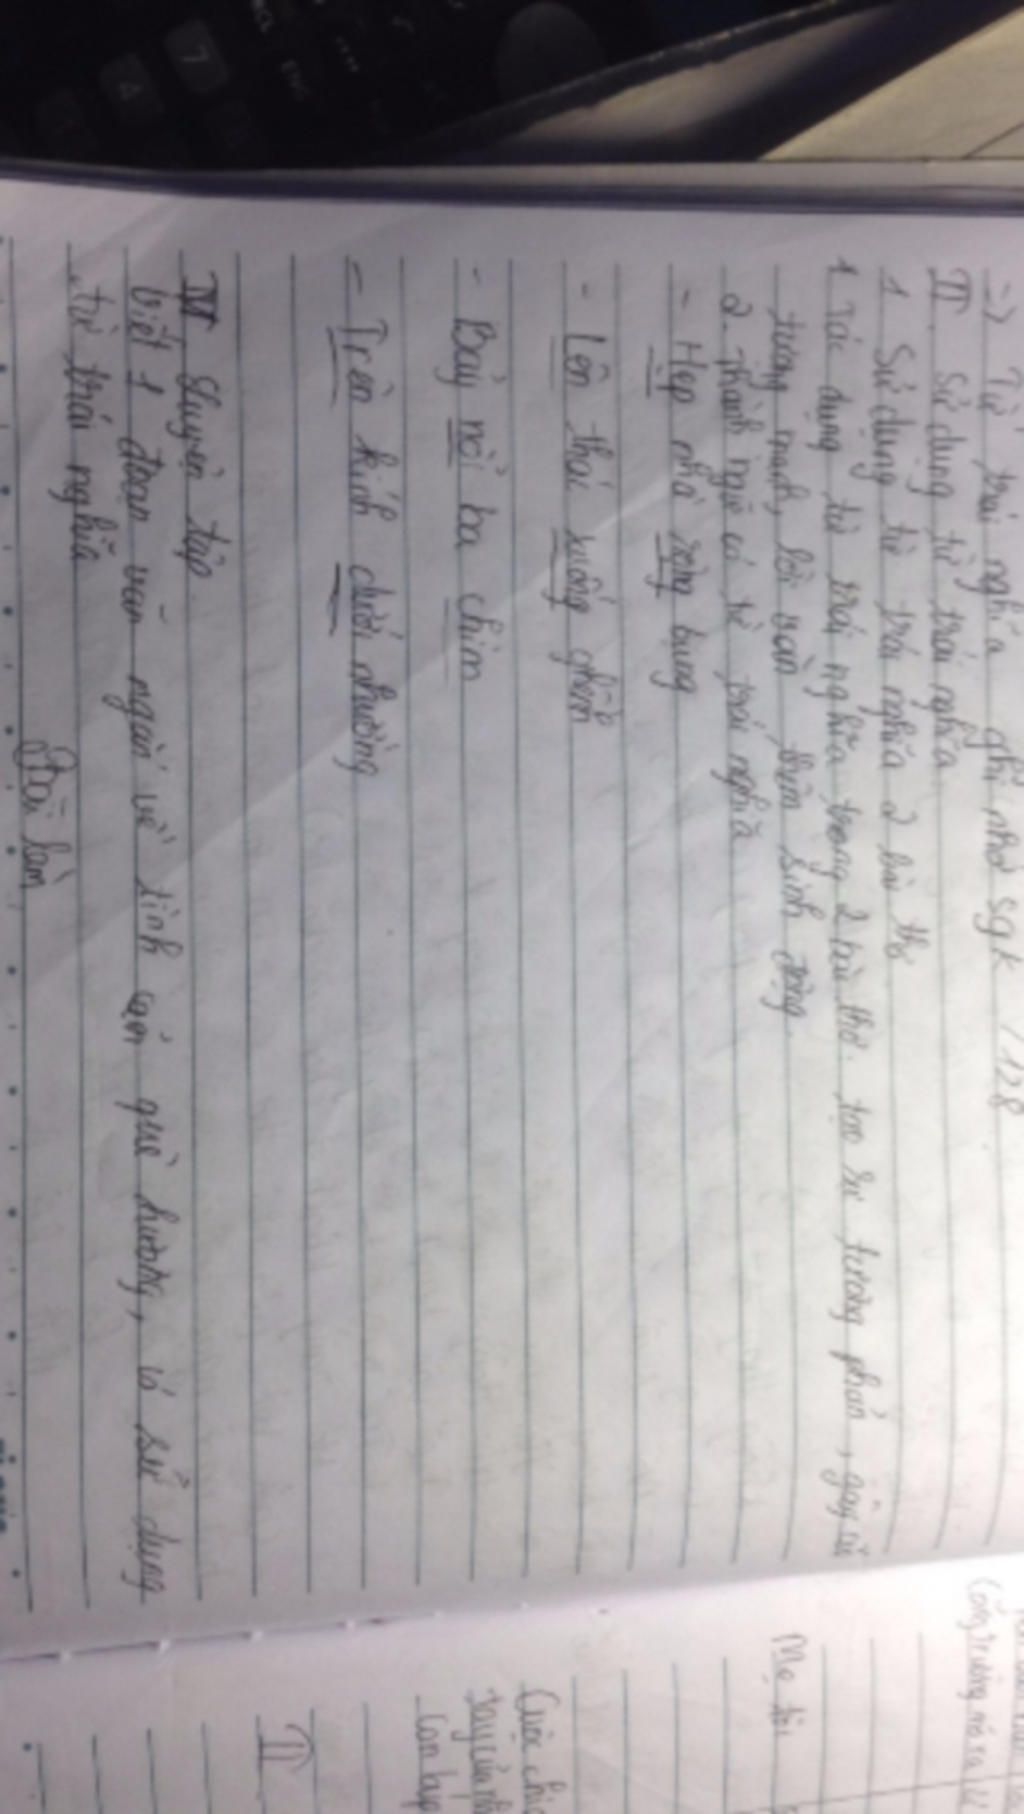 =) Từ trái nghĩa ghi nhớ sgk /128
II. Sử dụng từ trái nghĩa
1 Sử dụng từ trái nghĩa 2 bài thơ
1. Tác dụng từ trái nghĩa trong 2 bài thơ. tạo sự tương phản, gây ấn
tượng mạnh, lời văn thêm sinh động.
2. Thành ngữ có từ trái nghĩa
- Hẹp nhà rộng bụng
- Lên thác xuống ghềnh
- Bảy nổi ba chìm
- Trên kính dưới nhường
IV Luyện tập
Viết 1 đoạn văn ngắn về tình cảm quê hương, có sử dụng
từ trái nghĩa
Bài làm
Cổng trường mở ra
Mẹ tôi
Cuộc chia
tay của
con búp
II
7
4
ENG